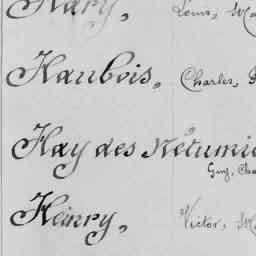 Hary, Louis,
Haubois, Charles,
Hay des Nétumi
Guy, Cha
Heinry, Victor, M